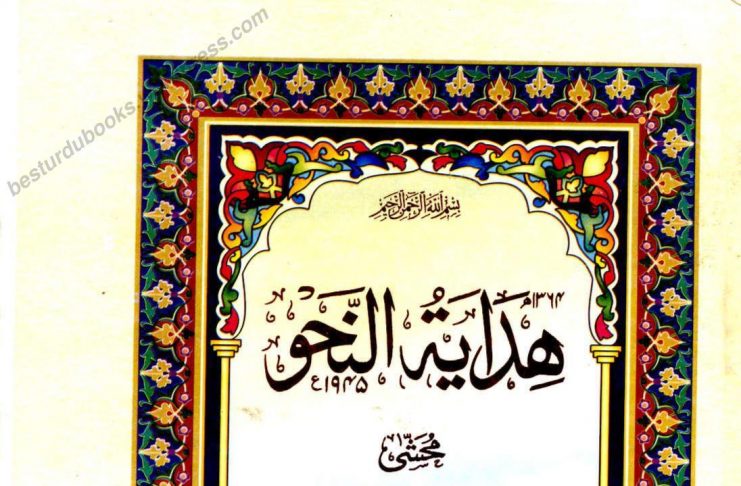 besturdubooks.wordpress.com
بسم الله الرحمن الرحيم
۱۳۶۴ھ
هِدَايَةُ النَّحو
۱۹۴۵ء
مُحَشّٰی